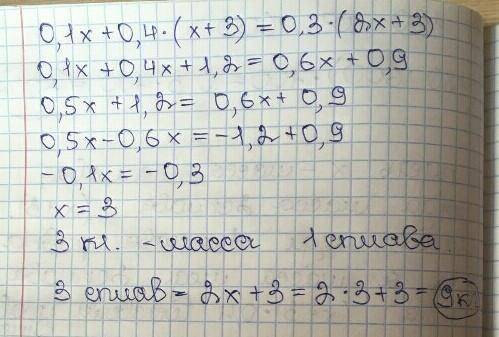 0,1x+0,4·(x+3)=0,3·(2x+3)
0,1x+0,4x+1,2=0,6x+0,9
0,5x+1,2=0,6x+0,9
0,5x-0,6x=-1,2+0,9
-0,1x=-0,3
x=3
3 кг. -масса 1 сплава.
3 сплав=2x+3=2·3+3=9к